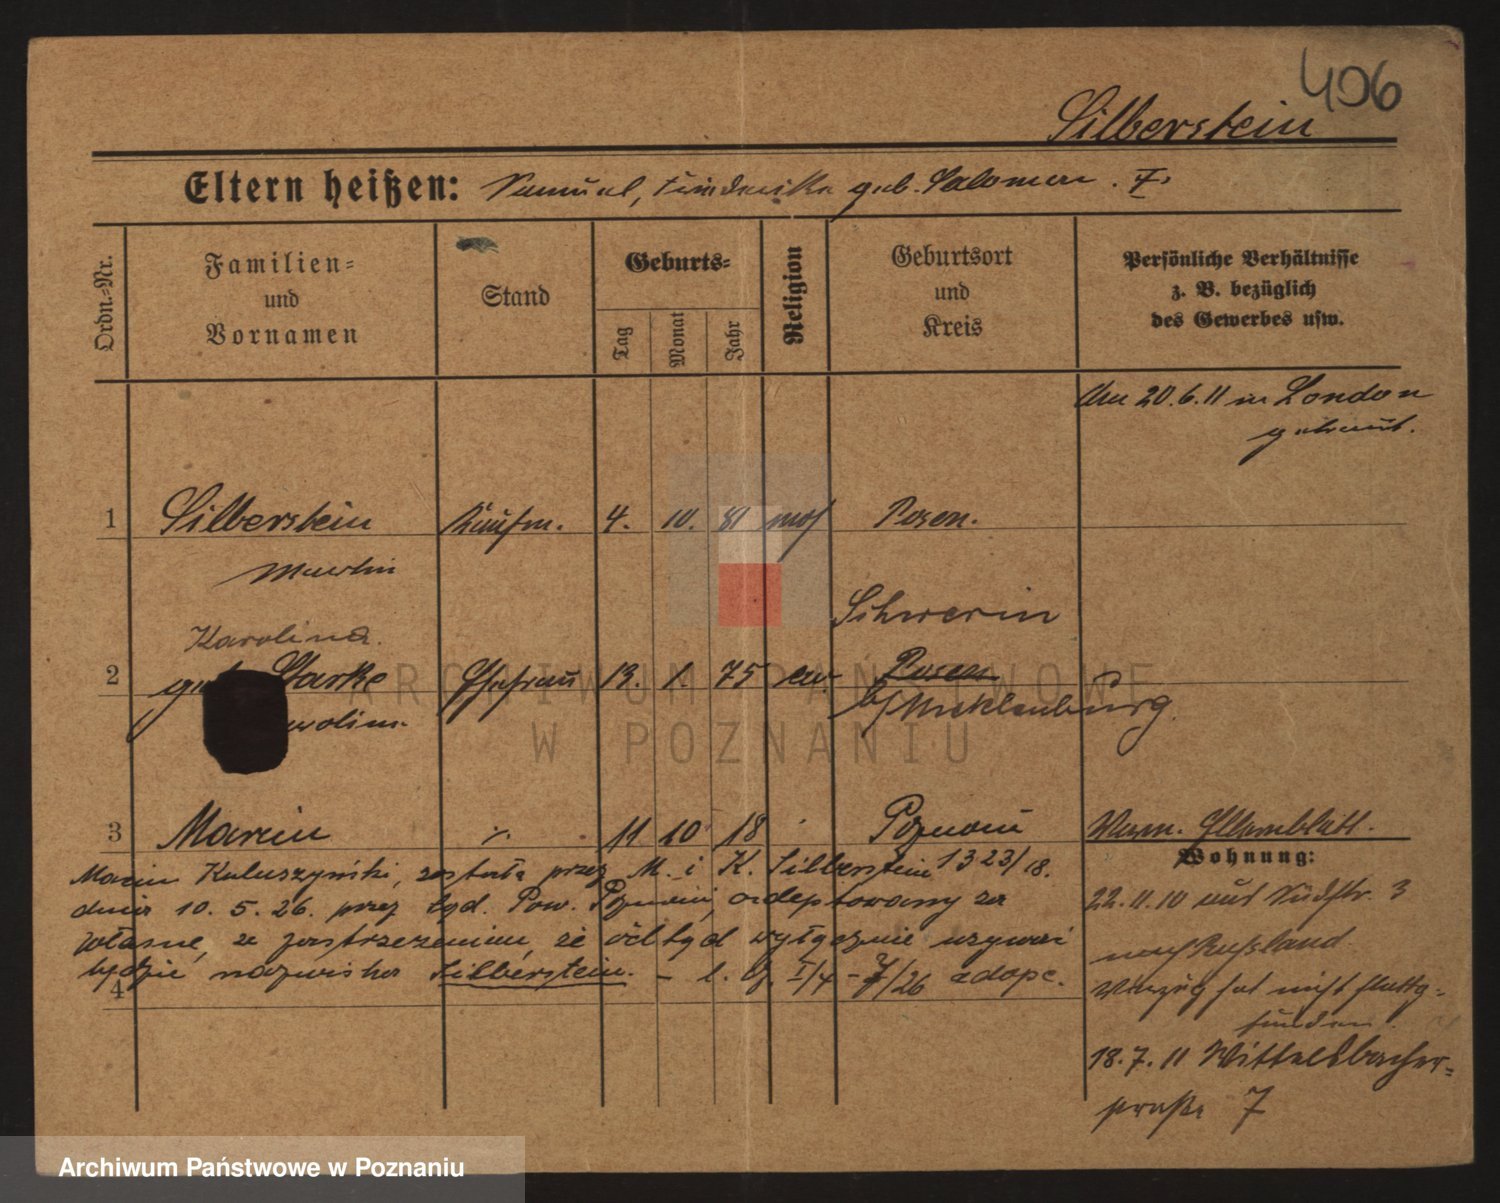 406
Silberstein
Eltern heißen: Samuel, Friederike geb. Salomon. I.
Ordn.-Nr.
Familien-
und
Vornamen
Stand
Geburts-
Tag
Monat
Jahr
Religion
Geburtsort
und
Kreis
Persönliche Verhältnisse
z. B. bezüglich
des Gewerbes usw.
Am 20.6.11 in London
getraut.
1 Silberstein Kaufm. 4. 10. 81 mos Posen.
Martin
Karolina
Schwerin
2 Starke Ehefrau 13. 1. 75 ev. Posen
b/Mecklenburg.
3 Marcin 11 10 18 Poznań
Marcin Kaluszyński, przez M. i K. Silberstein 1323/18.
dnia 10. 5. 26. przez Sąd. Pow. Poznań, adoptowany za
własne, z zastrzeżeniem, że odtąd wyłącznie używać
będzie nazwiska Silberstein. - I/4 - 7/26 adopc.
4
Wohnung:
22.11.10 auf Südstr. 3
nach Russland
Umzug hat nicht stattge-
funden.
18.7.11 Wittelsbacher-
straße 7
ARCHIWUM PAŃSTWOWE
W POZNANIU
Archiwum Państwowe w Poznaniu